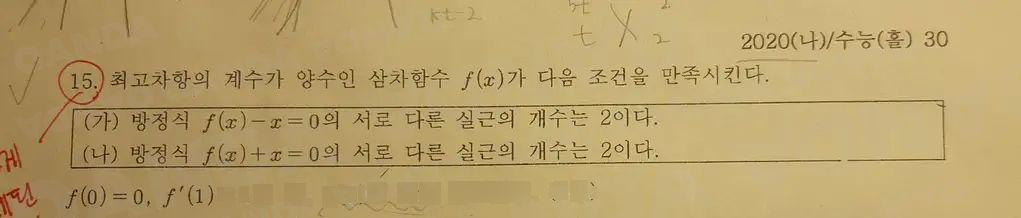 kt-2
2
t 2
2020(나)/수능(홀) 30
15. 최고차항의 계수가 양수인 삼차함수 f(x)가 다음 조건을 만족시킨다.
(가) 방정식 f(x)-x=0의 서로 다른 실근의 개수는 2이다.
(나) 방정식 f(x)+x=0의 서로 다른 실근의 개수는 2이다.
f(0)=0, f′(1)